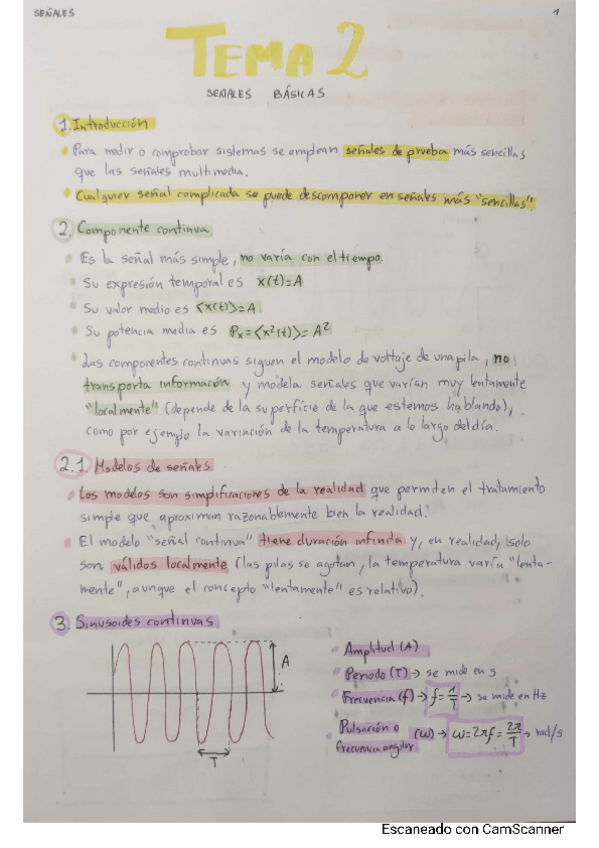 SEÑALES 1
TEMA 2
SEÑALES BÁSICAS
1. Introducción
Para medir o comprobar sistemas se emplean señales de prueba más sencillas
que las señales multimedia.
Cualquier señal complicada se puede descomponer en señales más "sencillas".
2. Componente continua
Es la señal más simple, no varía con el tiempo.
Su expresión temporal es x(t)=A
Su valor medio es <x(t)>=A
Su potencia media es Px=<x²(t)>=A²
Las componentes continuas siguen el modelo de voltaje de una pila, no
transporta información y modela señales que varían muy lentamente
"localmente" (depende de la superficie de la que estemos hablando),
como por ejemplo la variación de la temperatura a lo largo del día.
2.1. Modelos de señales
Los modelos son simplificaciones de la realidad que permiten el tratamiento
simple que aproximan razonablemente bien la realidad.
El modelo "señal continua" tiene duración infinita y, en realidad, solo
son válidos localmente (las pilas se agotan, la temperatura varía "lenta-
mente", aunque el concepto "lentamente" es relativo).
3. Sinusoides continuas
A
T
Amplitud (A)
Periodo (T) → se mide en s
Frecuencia (f) → f = 1/T → se mide en Hz
Pulsación o
frecuencia angular (ω) → ω = 2πf = 2π/T → rad/s
Escaneado con CamScanner